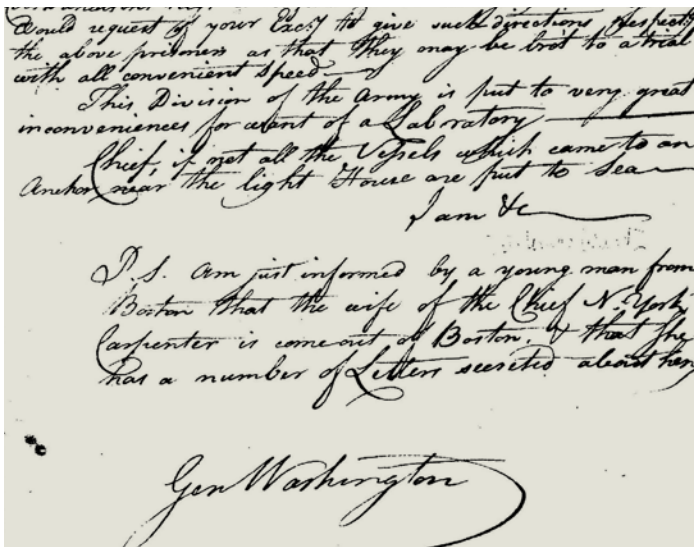 Would request of your Excy to give such directions respectg
the above prisoners as that they may be brot to a trial
with all convenient speed—
This Division of the Army is put to very great
inconveniences for want of a Labratory—
Chief, if not all the Vessels which came to an
Anchor near the light House are put to Sea—
I am &c
P.S. Am just informed by a young man from
Boston that the wife of the Chief N. York
Carpenter is come out of Boston, & that She
has a number of Letters secreted about her
Gen Washington